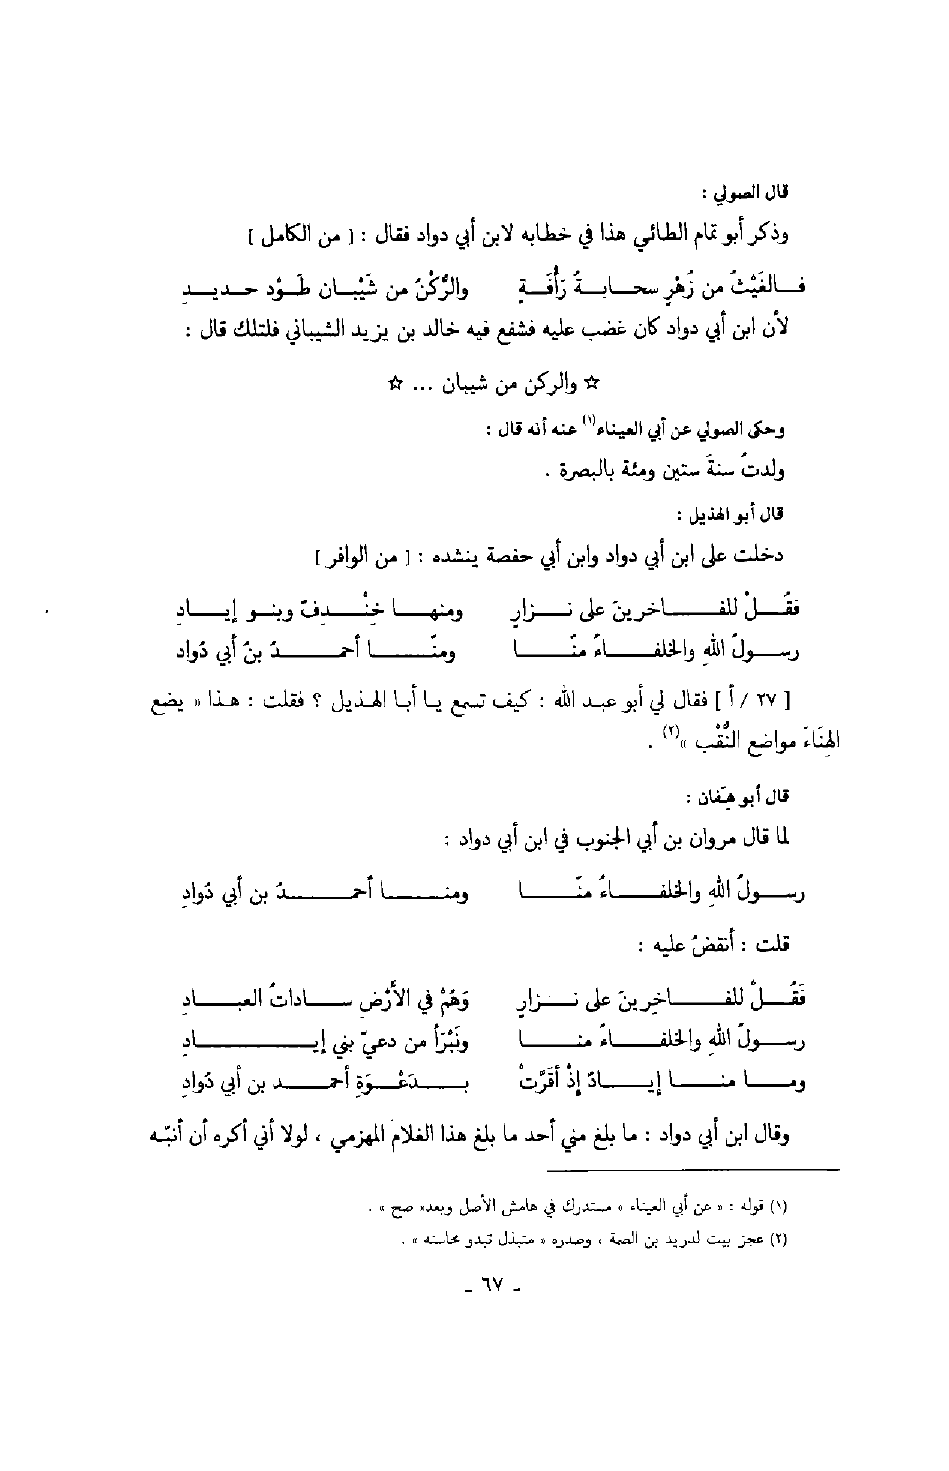 قال الصولي :
وذكر أبو تمام الطائي هذا في خطابه لابن أبي دواد فقال : [ من الكامل ]
فالغَيْثُ من زُهْرٍ سحابةُ رَأْفَةٍ والرُّكْنُ من شَيْبان طَوْد حديدِ
لأن ابن أبي دواد كان غضب عليه فشفع فيه خالد بن يزيد الشيباني فلتلك قال :
☆ والركن من شيبان ... ☆
وحكى الصولي عن أبي العيناء(١) عنه أنه قال :
ولدتُ سنةَ ستين ومئة بالبصرة .
قال أبو الهذيل :
دخلت على ابن أبي دواد وابن أبي حفصة ينشده : [ من الوافر ]
فقُلْ للفاخرينَ على نزارٍ ومنها خِنْدِفٌ وبنو إيادِ
رسولُ اللهِ والخلفاءُ منّا ومنّا أحمدُ بنُ أبي دُوادِ
[ ٢٧ / أ ] فقال لي أبو عبد الله : كيف تسمع يا أبا الهذيل ؟ فقلت : هذا « يضع
الهِنَاءَ مواضع النُّقْب »(٢) .
قال أبو هِفّان :
لما قال مروان بن أبي الجنوب في ابن أبي دواد :
رسولُ اللهِ والخلفاءُ منّا ومنا أحمدُ بن أبي دُوادِ
قلت : أنقضُ عليه :
فَقُلْ للفاخِرينَ على نزارٍ وَهُمْ في الأَرْضِ ساداتُ العبادِ
رسولُ اللهِ والخلفاءُ منا ونَبْرَأُ من دعيّ بني إيادِ
وما منا إيادٌ إذْ أقَرَّتْ بدَعْوَةِ أحمد بن أبي دُوادِ
وقال ابن أبي دواد : ما بلغ مني أحد ما بلغ هذا الغلام المهزمي ، لولا أني أكره أن أنبّه
(١) قوله : « عن أبي العيناء » مستدرك في هامش الأصل وبعده « صح » .
(٢) عجز بيت لدريد بن الصمة ، وصدره « متبذل تبدو محاسنه » .
- ٦٧ -